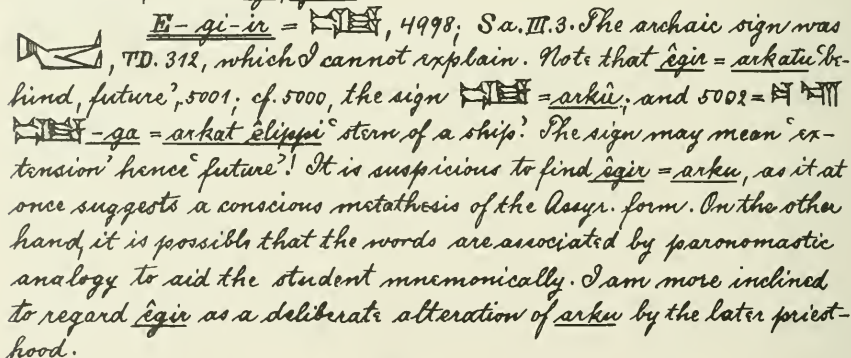 E-gi-ir = , 4998; Sa. III. 3. The archaic sign was
, TD. 312, which I cannot explain. Note that êgir = arkatu ‘be-
hind, future’, 5001; cf. 5000, the sign = arkû; and 5002 =
-ga = arkat êlippi ‘stern of a ship’. The sign may mean ‘ex-
tension’ hence ‘future’! It is suspicious to find êgir = arku, as it at
once suggests a conscious metathesis of the Assyr. form. On the other
hand, it is possible that the words are associated by paronomastic
analogy to aid the student mnemonically. I am more inclined
to regard êgir as a deliberate alteration of arku by the later priest-
hood.